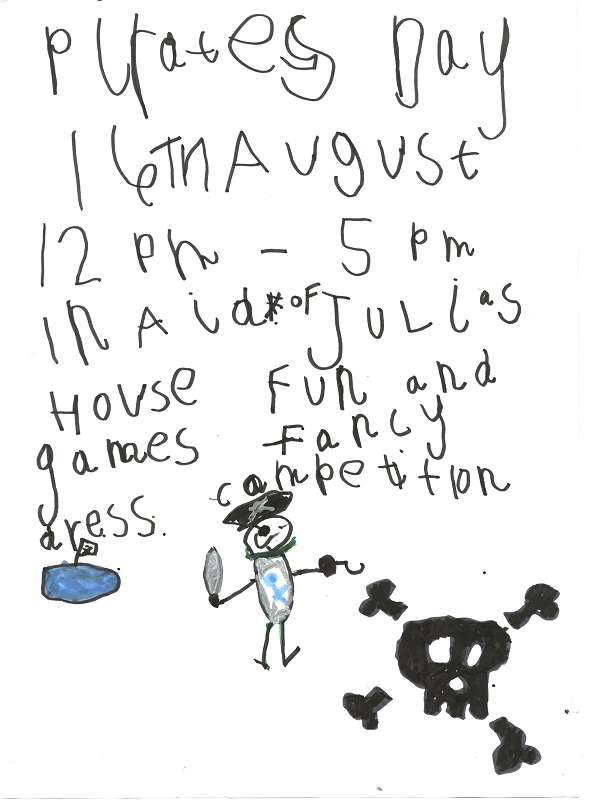 PIrates Day
16TH AUgUSt
12 pm - 5 pm
IN Aid of JULias
House FUN and
games Fancy
competition
dress.